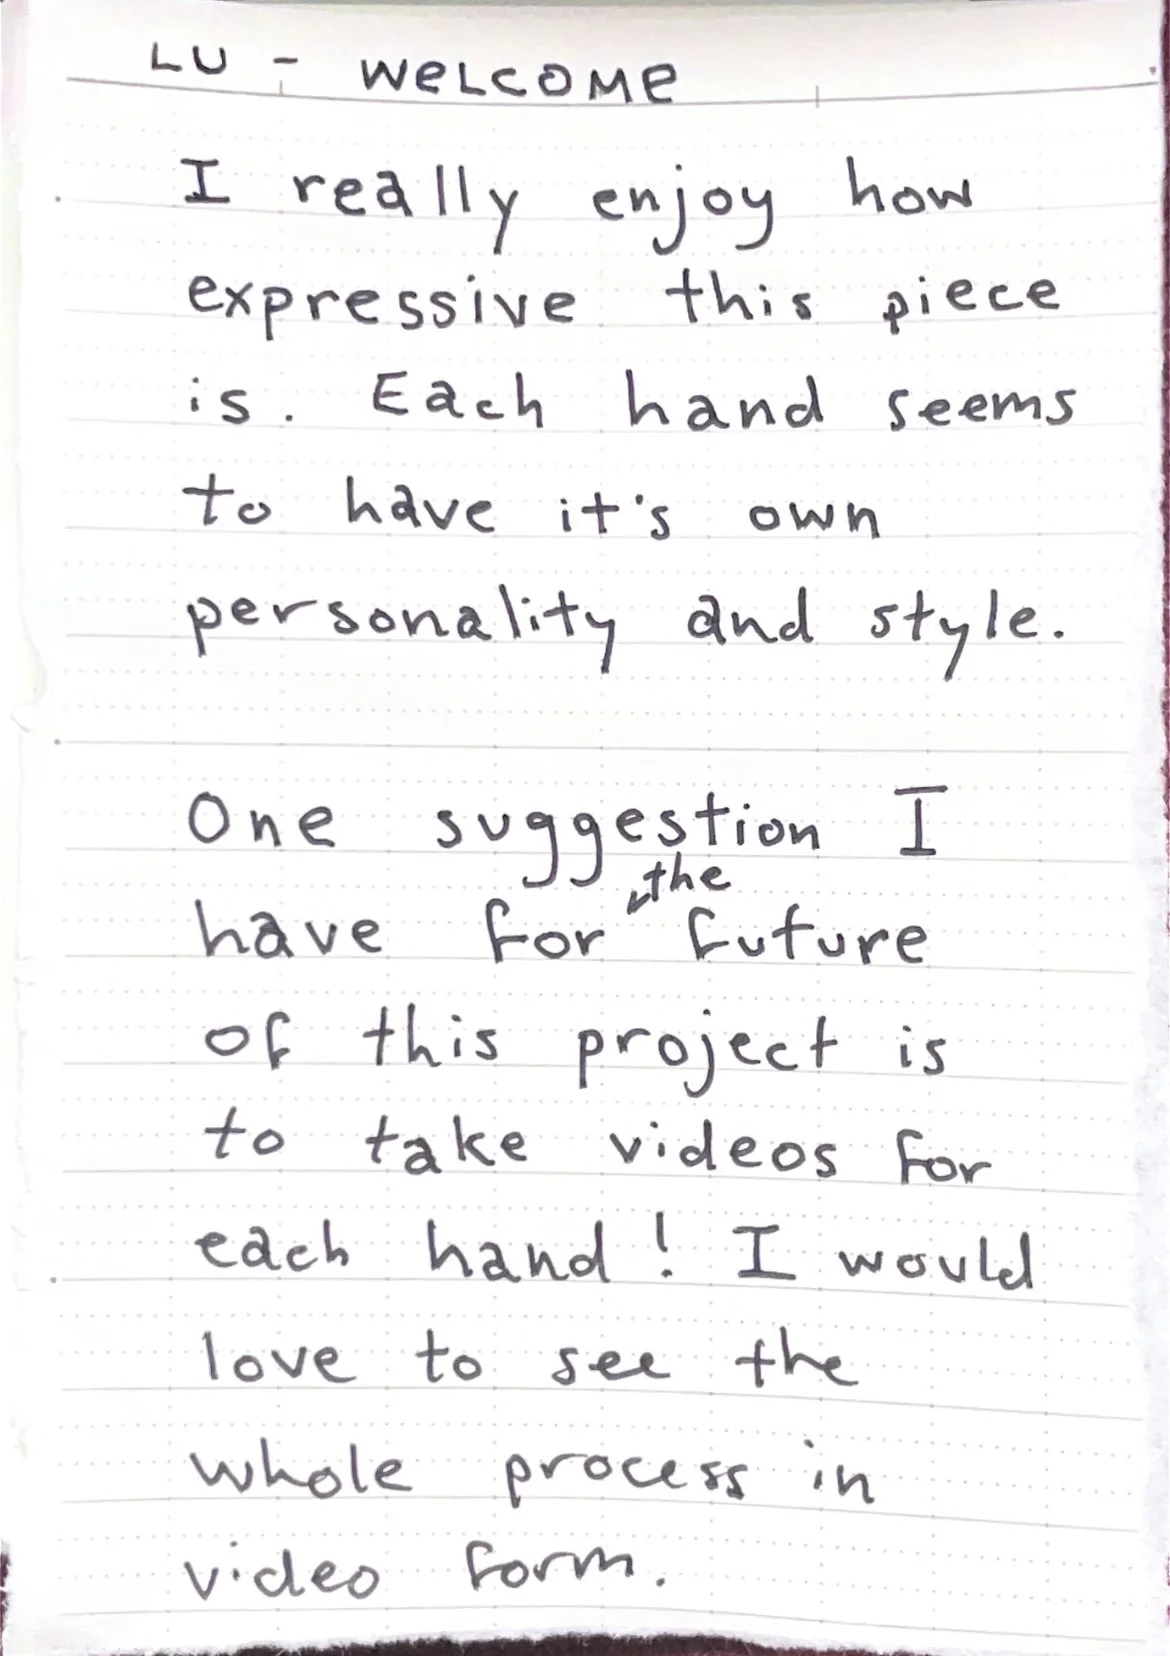 LU - WeLCOMe
I really enjoy how
expressive this piece
is. Each hand seems
to have it's own
personality and style.
One suggestion I
the
have for future
of this project is
to take videos for
each hand! I would
love to see the
whole process in
video form.